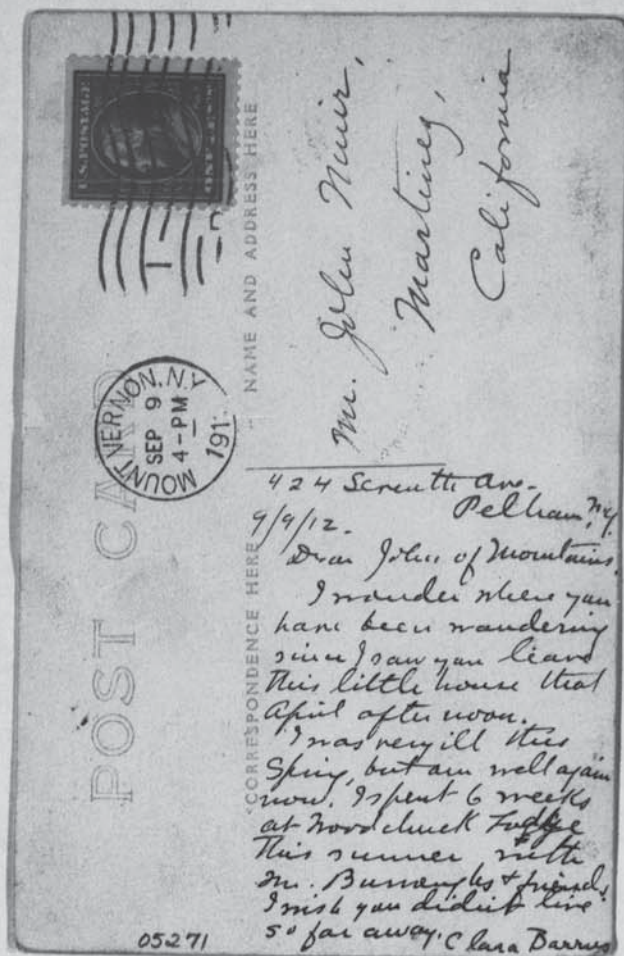 POST CARD
U.S. POSTAGE
ONE CENT
MOUNT VERNON, N.Y.
SEP 9
4-PM
191
NAME AND ADDRESS HERE
Mr. John Muir,
Martinez,
California
CORRESPONDENCE HERE
424 Seventh Ave.
Pelham, N.Y.
9/9/12.
Dear John of Mountains,
I wonder where you
have been wandering
since I saw you leave
this little house that
April afternoon.
I was very ill this
Spring, but am well again
now. I spent 6 weeks
at Woodchuck Lodge
this summer with
Mr. Burroughs + friends.
I wish you didn't live
so far away. Clara Barrus
05271